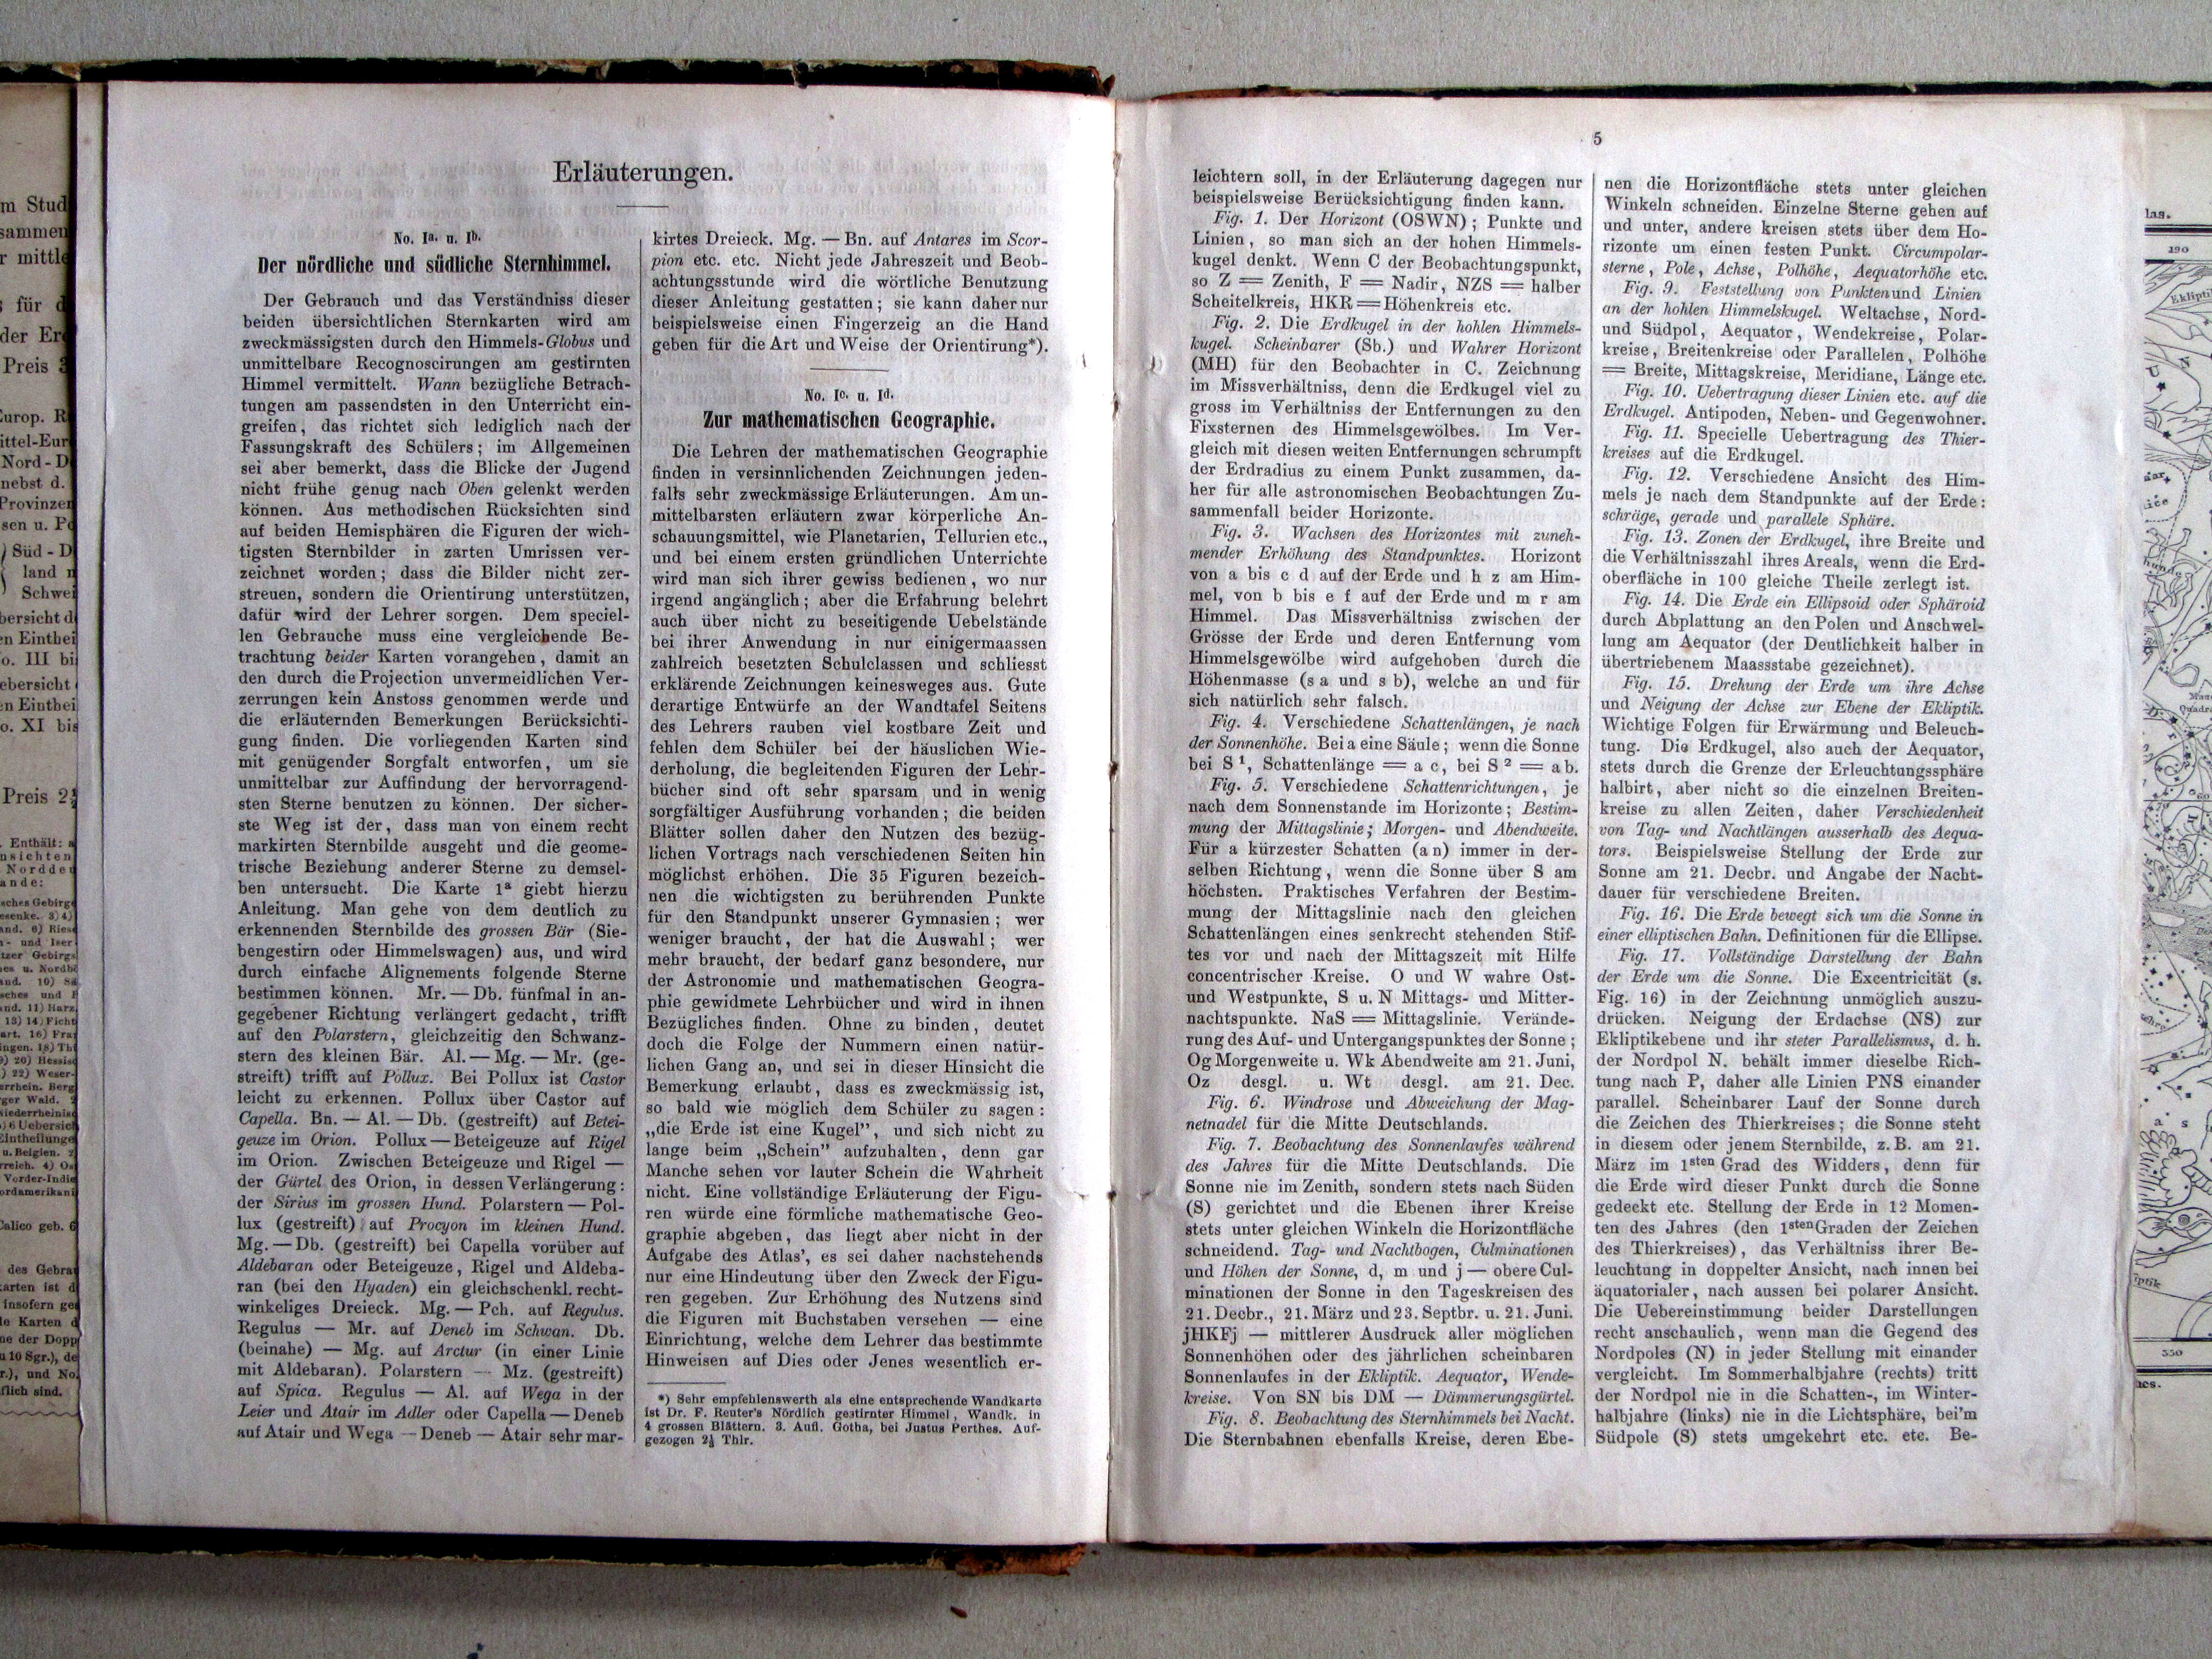 Erläuterungen.
No. Ia. u. Ib.
Der nördliche und südliche Sternhimmel.
Der Gebrauch und das Verständniss dieser
beiden übersichtlichen Sternkarten wird am
zweckmässigsten durch den Himmels-Globus und
unmittelbare Recognoscirungen am gestirnten
Himmel vermittelt. Wann bezügliche Betrach-
tungen am passendsten in den Unterricht ein-
greifen, das richtet sich lediglich nach der
Fassungskraft des Schülers; im Allgemeinen
sei aber bemerkt, dass die Blicke der Jugend
nicht frühe genug nach Oben gelenkt werden
können. Aus methodischen Rücksichten sind
auf beiden Hemisphären die Figuren der wich-
tigsten Sternbilder in zarten Umrissen ver-
zeichnet worden; dass die Bilder nicht zer-
streuen, sondern die Orientirung unterstützen,
dafür wird der Lehrer sorgen. Dem speciel-
len Gebrauche muss eine vergleichende Be-
trachtung beider Karten vorangehen, damit an
den durch die Projection unvermeidlichen Ver-
zerrungen kein Anstoss genommen werde und
die erläuternden Bemerkungen Berücksichti-
gung finden. Die vorliegenden Karten sind
mit genügender Sorgfalt entworfen, um sie
unmittelbar zur Auffindung der hervorragend-
sten Sterne benutzen zu können. Der sicher-
ste Weg ist der, dass man von einem recht
markirten Sternbilde ausgeht und die geome-
trische Beziehung anderer Sterne zu demsel-
ben untersucht. Die Karte 1a giebt hierzu
Anleitung. Man gehe von dem deutlich zu
erkennenden Sternbilde des grossen Bär (Sie-
bengestirn oder Himmelswagen) aus, und wird
durch einfache Alignements folgende Sterne
bestimmen können. Mr. — Db. fünfmal in an-
gegebener Richtung verlängert gedacht, trifft
auf den Polarstern, gleichzeitig den Schwanz-
stern des kleinen Bär. Al. — Mg. — Mr. (ge-
streift) trifft auf Pollux. Bei Pollux ist Castor
leicht zu erkennen. Pollux über Castor auf
Capella. Bn. — Al. — Db. (gestreift) auf Betei-
geuze im Orion. Pollux — Beteigeuze auf Rigel
im Orion. Zwischen Beteigeuze und Rigel —
der Gürtel des Orion, in dessen Verlängerung:
der Sirius im grossen Hund. Polarstern — Pol-
lux (gestreift) auf Procyon im kleinen Hund.
Mg. — Db. (gestreift) bei Capella vorüber auf
Aldebaran oder Beteigeuze, Rigel und Aldeba-
ran (bei den Hyaden) ein gleichschenkl. recht-
winkeliges Dreieck. Mg. — Pch. auf Regulus.
Regulus — Mr. auf Deneb im Schwan. Db.
(beinahe) — Mg. auf Arctur (in einer Linie
mit Aldebaran). Polarstern — Mz. (gestreift)
auf Spica. Regulus — Al. auf Wega in der
Leier und Atair im Adler oder Capella — Deneb
auf Atair und Wega — Deneb — Atair sehr mar-
kirtes Dreieck. Mg. — Bn. auf Antares im Scor-
pion etc. etc. Nicht jede Jahreszeit und Beob-
achtungsstunde wird die wörtliche Benutzung
dieser Anleitung gestatten; sie kann daher nur
beispielsweise einen Fingerzeig an die Hand
geben für die Art und Weise der Orientirung*).
No. Ic. u. Id.
Zur mathematischen Geographie.
Die Lehren der mathematischen Geographie
finden in versinnlichenden Zeichnungen jeden-
falls sehr zweckmässige Erläuterungen. Am un-
mittelbarsten erläutern zwar körperliche An-
schauungsmittel, wie Planetarien, Tellurien etc.,
und bei einem ersten gründlichen Unterrichte
wird man sich ihrer gewiss bedienen, wo nur
irgend angänglich; aber die Erfahrung belehrt
auch über nicht zu beseitigende Uebelstände
bei ihrer Anwendung in nur einigermaassen
zahlreich besetzten Schulclassen und schliesst
erklärende Zeichnungen keinesweges aus. Gute
derartige Entwürfe an der Wandtafel Seitens
des Lehrers rauben viel kostbare Zeit und
fehlen dem Schüler bei der häuslichen Wie-
derholung, die begleitenden Figuren der Lehr-
bücher sind oft sehr sparsam und in wenig
sorgfältiger Ausführung vorhanden; die beiden
Blätter sollen daher den Nutzen des bezüg-
lichen Vortrags nach verschiedenen Seiten hin
möglichst erhöhen. Die 35 Figuren bezeich-
nen die wichtigsten zu berührenden Punkte
für den Standpunkt unserer Gymnasien; wer
weniger braucht, der hat die Auswahl; wer
mehr braucht, der bedarf ganz besondere, nur
der Astronomie und mathematischen Geogra-
phie gewidmete Lehrbücher und wird in ihnen
Bezügliches finden. Ohne zu binden, deutet
doch die Folge der Nummern einen natür-
lichen Gang an, und sei in dieser Hinsicht die
Bemerkung erlaubt, dass es zweckmässig ist,
so bald wie möglich dem Schüler zu sagen:
„die Erde ist eine Kugel", und sich nicht zu
lange beim „Schein" aufzuhalten, denn gar
Manche sehen vor lauter Schein die Wahrheit
nicht. Eine vollständige Erläuterung der Figu-
ren würde eine förmliche mathematische Geo-
graphie abgeben, das liegt aber nicht in der
Aufgabe des Atlas', es sei daher nachstehends
nur eine Hindeutung über den Zweck der Figu-
ren gegeben. Zur Erhöhung des Nutzens sind
die Figuren mit Buchstaben versehen — eine
Einrichtung, welche dem Lehrer das bestimmte
Hinweisen auf Dies oder Jenes wesentlich er-
*) Sehr empfehlenswerth als eine entsprechende Wandkarte
ist Dr. F. Reuter's Nördlich gestirnter Himmel, Wandk. in
4 grossen Blättern. 3. Aufl. Gotha, bei Justus Perthes. Auf-
gezogen 2½ Thlr.
5
leichtern soll, in der Erläuterung dagegen nur
beispielsweise Berücksichtigung finden kann.
Fig. 1. Der Horizont (OSWN); Punkte und
Linien, so man sich an der hohen Himmels-
kugel denkt. Wenn C der Beobachtungspunkt,
so Z = Zenith, F = Nadir, NZS = halber
Scheitelkreis, HKR = Höhenkreis etc.
Fig. 2. Die Erdkugel in der hohlen Himmels-
kugel. Scheinbarer (Sb.) und Wahrer Horizont
(MH) für den Beobachter in C. Zeichnung
im Missverhältniss, denn die Erdkugel viel zu
gross im Verhältniss der Entfernungen zu den
Fixsternen des Himmelsgewölbes. Im Ver-
gleich mit diesen weiten Entfernungen schrumpft
der Erdradius zu einem Punkt zusammen, da-
her für alle astronomischen Beobachtungen Zu-
sammenfall beider Horizonte.
Fig. 3. Wachsen des Horizontes mit zuneh-
mender Erhöhung des Standpunktes. Horizont
von a bis c d auf der Erde und h z am Him-
mel, von b bis e f auf der Erde und m r am
Himmel. Das Missverhältniss zwischen der
Grösse der Erde und deren Entfernung vom
Himmelsgewölbe wird aufgehoben durch die
Höhenmasse (s a und s b), welche an und für
sich natürlich sehr falsch.
Fig. 4. Verschiedene Schattenlängen, je nach
der Sonnenhöhe. Bei a eine Säule; wenn die Sonne
bei S 1, Schattenlänge = a c, bei S 2 = ab.
Fig. 5. Verschiedene Schattenrichtungen, je
nach dem Sonnenstande im Horizonte; Bestim-
mung der Mittagslinie; Morgen- und Abendweite.
Für a kürzester Schatten (a n) immer in der-
selben Richtung, wenn die Sonne über S am
höchsten. Praktisches Verfahren der Bestim-
mung der Mittagslinie nach den gleichen
Schattenlängen eines senkrecht stehenden Stif-
tes vor und nach der Mittagszeit mit Hilfe
concentrischer Kreise. O und W wahre Ost-
und Westpunkte, S u. N Mittags- und Mitter-
nachtspunkte. NaS = Mittagslinie. Verände-
rung des Auf- und Untergangspunktes der Sonne;
Og Morgenweite u. Wk Abendweite am 21. Juni,
Oz desgl. u. Wt desgl. am 21. Dec.
Fig. 6. Windrose und Abweichung der Mag-
netnadel für die Mitte Deutschlands.
Fig. 7. Beobachtung des Sonnenlaufes während
des Jahres für die Mitte Deutschlands. Die
Sonne nie im Zenith, sondern stets nach Süden
(S) gerichtet und die Ebenen ihrer Kreise
stets unter gleichen Winkeln die Horizontfläche
schneidend. Tag- und Nachtbogen, Culminationen
und Höhen der Sonne, d, m und j — obere Cul-
minationen der Sonne in den Tageskreisen des
21. Decbr., 21. März und 23. Septbr. u. 21. Juni.
jHKFj — mittlerer Ausdruck aller möglichen
Sonnenhöhen oder des jährlichen scheinbaren
Sonnenlaufes in der Ekliptik. Aequator, Wende-
kreise. Von SN bis DM — Dämmerungsgürtel.
Fig. 8. Beobachtung des Sternhimmels bei Nacht.
Die Sternbahnen ebenfalls Kreise, deren Ebe-
nen die Horizontfläche stets unter gleichen
Winkeln schneiden. Einzelne Sterne gehen auf
und unter, andere kreisen stets über dem Ho-
rizonte um einen festen Punkt. Circumpolar-
sterne, Pole, Achse, Polhöhe, Aequatorhöhe etc.
Fig. 9. Feststellung von Punkten und Linien
an der hohlen Himmelskugel. Weltachse, Nord-
und Südpol, Aequator, Wendekreise, Polar-
kreise, Breitenkreise oder Parallelen, Polhöhe
= Breite, Mittagskreise, Meridiane, Länge etc.
Fig. 10. Uebertragung dieser Linien etc. auf die
Erdkugel. Antipoden, Neben- und Gegenwohner.
Fig. 11. Specielle Uebertragung des Thier-
kreises auf die Erdkugel.
Fig. 12. Verschiedene Ansicht des Him-
mels je nach dem Standpunkte auf der Erde:
schräge, gerade und parallele Sphäre.
Fig. 13. Zonen der Erdkugel, ihre Breite und
die Verhältnisszahl ihres Areals, wenn die Erd-
oberfläche in 100 gleiche Theile zerlegt ist.
Fig. 14. Die Erde ein Ellipsoid oder Sphäroid
durch Abplattung an den Polen und Anschwel-
lung am Aequator (der Deutlichkeit halber in
übertriebenem Maassstabe gezeichnet).
Fig. 15. Drehung der Erde um ihre Achse
und Neigung der Achse zur Ebene der Ekliptik.
Wichtige Folgen für Erwärmung und Beleuch-
tung. Die Erdkugel, also auch der Aequator,
stets durch die Grenze der Erleuchtungssphäre
halbirt, aber nicht so die einzelnen Breiten-
kreise zu allen Zeiten, daher Verschiedenheit
von Tag- und Nachtlängen ausserhalb des Aequa-
tors. Beispielsweise Stellung der Erde zur
Sonne am 21. Decbr. und Angabe der Nacht-
dauer für verschiedene Breiten.
Fig. 16. Die Erde bewegt sich um die Sonne in
einer elliptischen Bahn. Definitionen für die Ellipse.
Fig. 17. Vollständige Darstellung der Bahn
der Erde um die Sonne. Die Excentricität (s.
Fig. 16) in der Zeichnung unmöglich auszu-
drücken. Neigung der Erdachse (NS) zur
Ekliptikebene und ihr steter Parallelismus, d. h.
der Nordpol N. behält immer dieselbe Rich-
tung nach P, daher alle Linien PNS einander
parallel. Scheinbarer Lauf der Sonne durch
die Zeichen des Thierkreises; die Sonne steht
in diesem oder jenem Sternbilde, z. B. am 21.
März im 1sten Grad des Widders, denn für
die Erde wird dieser Punkt durch die Sonne
gedeckt etc. Stellung der Erde in 12 Momen-
ten des Jahres (den 1sten Graden der Zeichen
des Thierkreises), das Verhältniss ihrer Be-
leuchtung in doppelter Ansicht, nach innen bei
äquatorialer, nach aussen bei polarer Ansicht.
Die Uebereinstimmung beider Darstellungen
recht anschaulich, wenn man die Gegend des
Nordpoles (N) in jeder Stellung mit einander
vergleicht. Im Sommerhalbjahre (rechts) tritt
der Nordpol nie in die Schatten-, im Winter-
halbjahre (links) nie in die Lichtsphäre, bei'm
Südpole (S) stets umgekehrt etc. etc. Be-